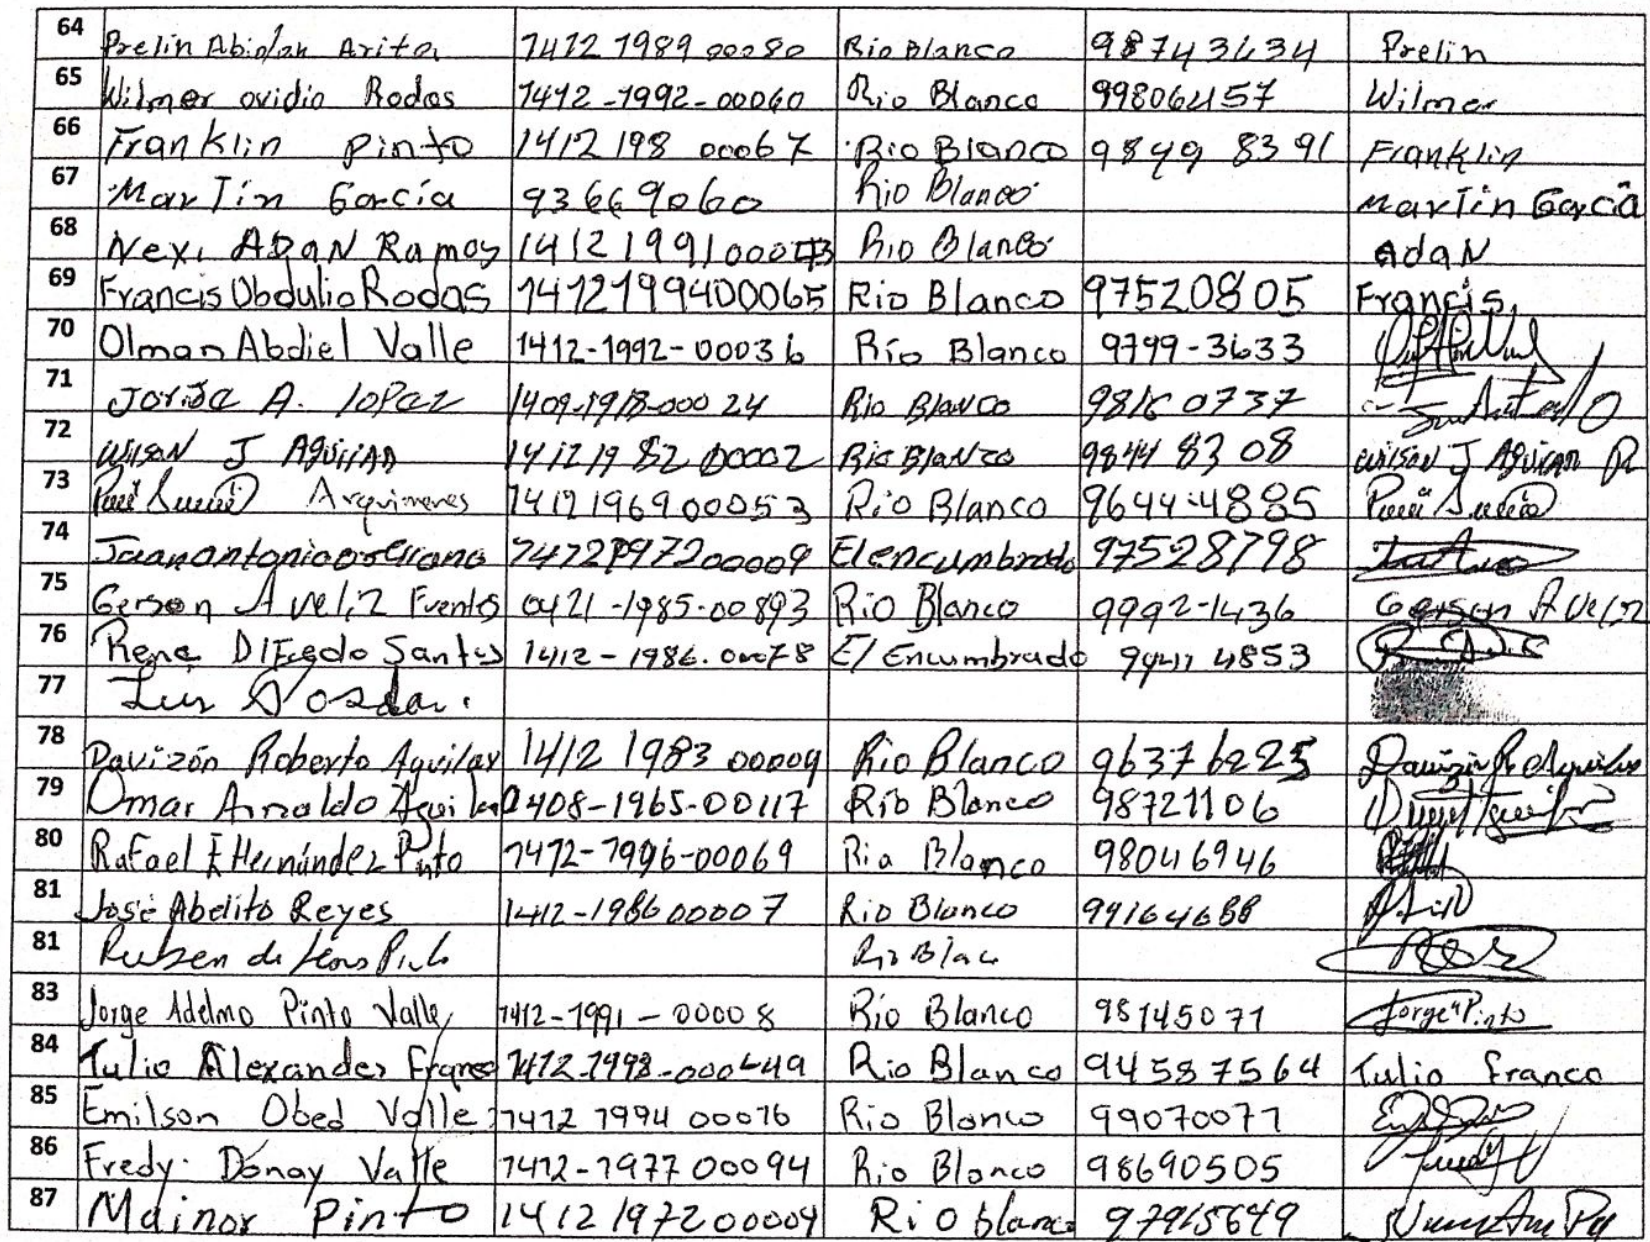 64 Prelin Abidan Arita 1412 1989 00080 Rio Blanco 98743634 Prelin
65 Wilmer ovidio Rodas 1412-1992-00060 Rio Blanco 99806457 Wilmer
66 Franklin pinto 1412 198 00067 Rio Blanco 9849 8391 Franklin
67 Martin García 93669060 Rio Blanco Martin García
68 Nexi ADaN Ramos 1412 1991 00073 Rio Blanco AdaN
69 Francis Obdulio Rodas 1412199400065 Rio Blanco 97520805 Francis
70 Olman Abdiel Valle 1412-1992-00036 Río Blanco 9799-3633
71 A. lopez 1409-1978-00024 Rio Blanco 0737
72 Wilson J Aguilar 1412 1982 00002 Rio Blanco 9844 8308 Wilson J Aguilar R
73 Arquimenes 1412 1969 00053 Rio Blanco 9644-4885
74 Juan antonio 1412197200009 El encumbrado 97528798
75 Gerson Aveliz Fuentes 0421-1985-00893 Rio Blanco 9992-1436 Gerson Aveliz
76 Rene Santos 1412-1986-00078 El Encumbrado 4853
77 Luis
78 Davizón Roberto Aguilar 1412 1983 00009 Rio Blanco 96376225
79 Omar Arnaldo Aguilar 0408-1965-00117 Rio Blanco 98721106
80 Rafael E Hernández Pinto 1412-1996-00069 Rio Blanco 98046946
81 José Abelito Reyes 1412-1986 00007 Rio Blanco 99164688
81 Ruben de Rio Blac
83 Jorge Adelmo Pinto Valle 1412-1991-00008 Rio Blanco 98145071 Jorge Pinto
84 Tulio Alexander Franco Rio Blanco 94587564 Tulio franco
85 Emilson Obed Valle 1412 1994 00016 Rio Blanco 99070077
86 Fredy Donay Valle 1412-1977 00094 Rio Blanco 98690505
87 Mainor Pinto 1412 1972 00004 Rio blanco 97915649